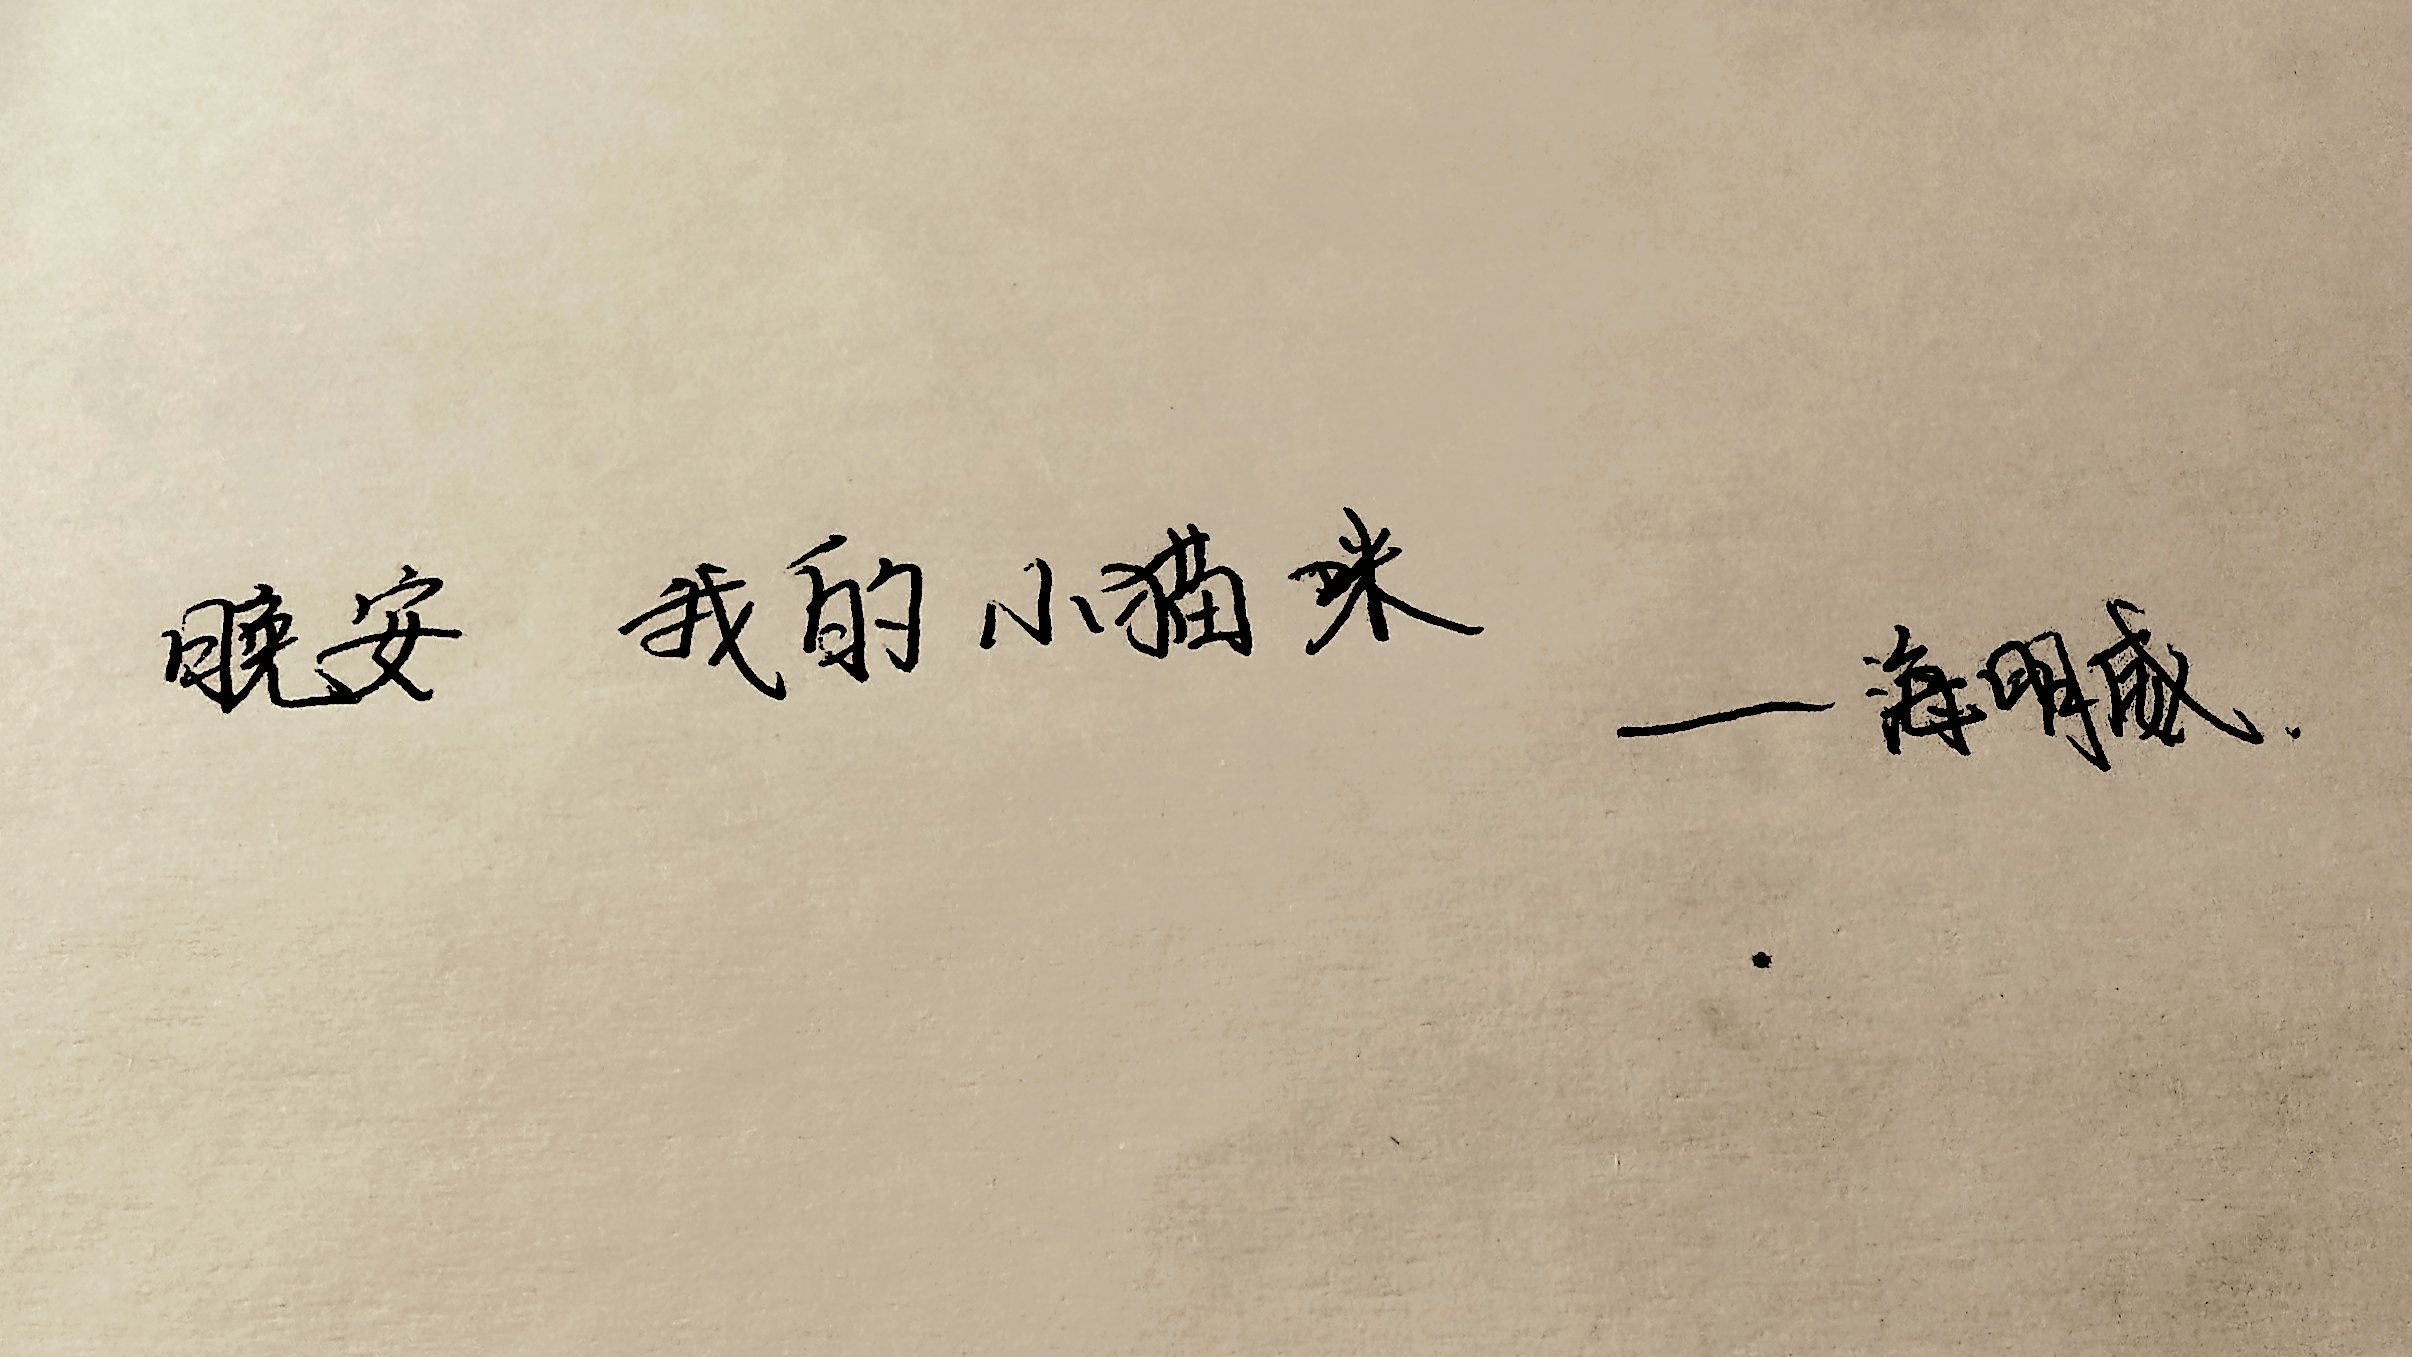 晚安 我的小猫咪
——海明威.